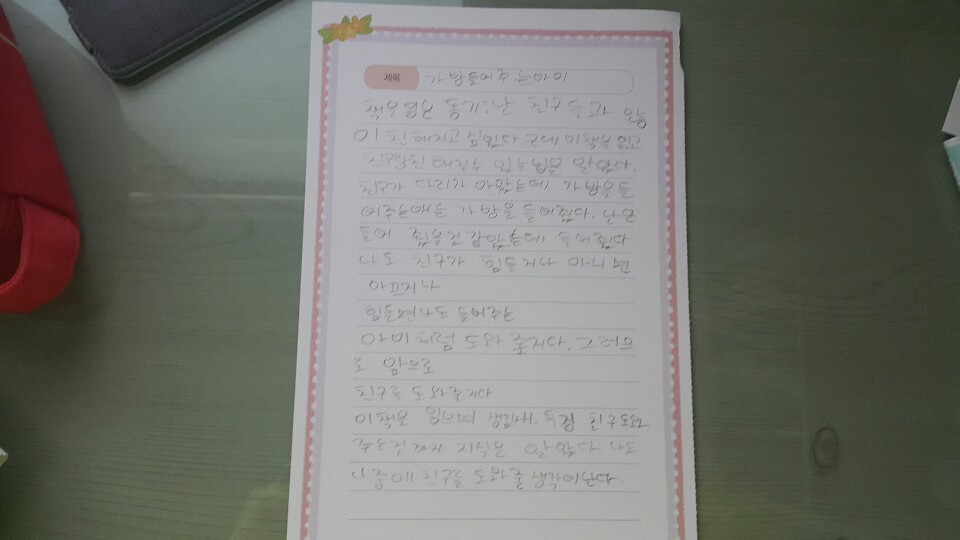 제목 가방들어주는아이
책을 읽은 동기:난 친구들과 많
이 친해지고 싶었다.근데 이책을 읽고
친구랑친해질수 있는법을 알았다.
친구가 다리가 아팠는데 가방을들
어주는애는 가방을 들어줬다. 난 안
들어 줬을것같았는데 들어줬다
나도 친구가 힘들거나 아니면
아프거나
힘들면나도 들어주는
아이처럼 도와줄거다.그러므
로 앞으로
친구를 도와줄거다
이책을 읽으며 생각해. 친구도와
주는건 까지 지식을 알았다 나도
나중에 친구를 도와줄생각이난다